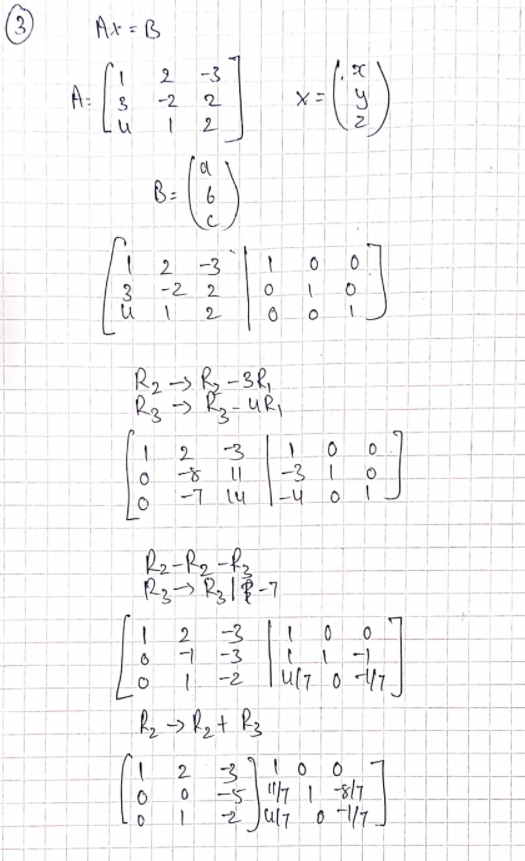 3 Ax = B
A = [1 2 -3
3 -2 2
4 1 2] x = (x
y
z)
B = (a
b
c)
[1 2 -3 | 1 0 0
3 -2 2 | 0 1 0
4 1 2 | 0 0 1]
R2 → R2 - 3R1
R3 → R3 - 4R1
[1 2 -3 | 1 0 0
0 -8 11 | -3 1 0
0 -7 14 | -4 0 1]
R2 - R2 - R3
R3 → R3 | -7
[1 2 -3 | 1 0 0
0 -1 -3 | 1 1 -1
0 1 -2 | 4/7 0 -1/7]
R2 → R2 + R3
[1 2 -3 | 1 0 0
0 0 -5 | 11/7 1 -8/7
0 1 -2 | 4/7 0 -1/7]